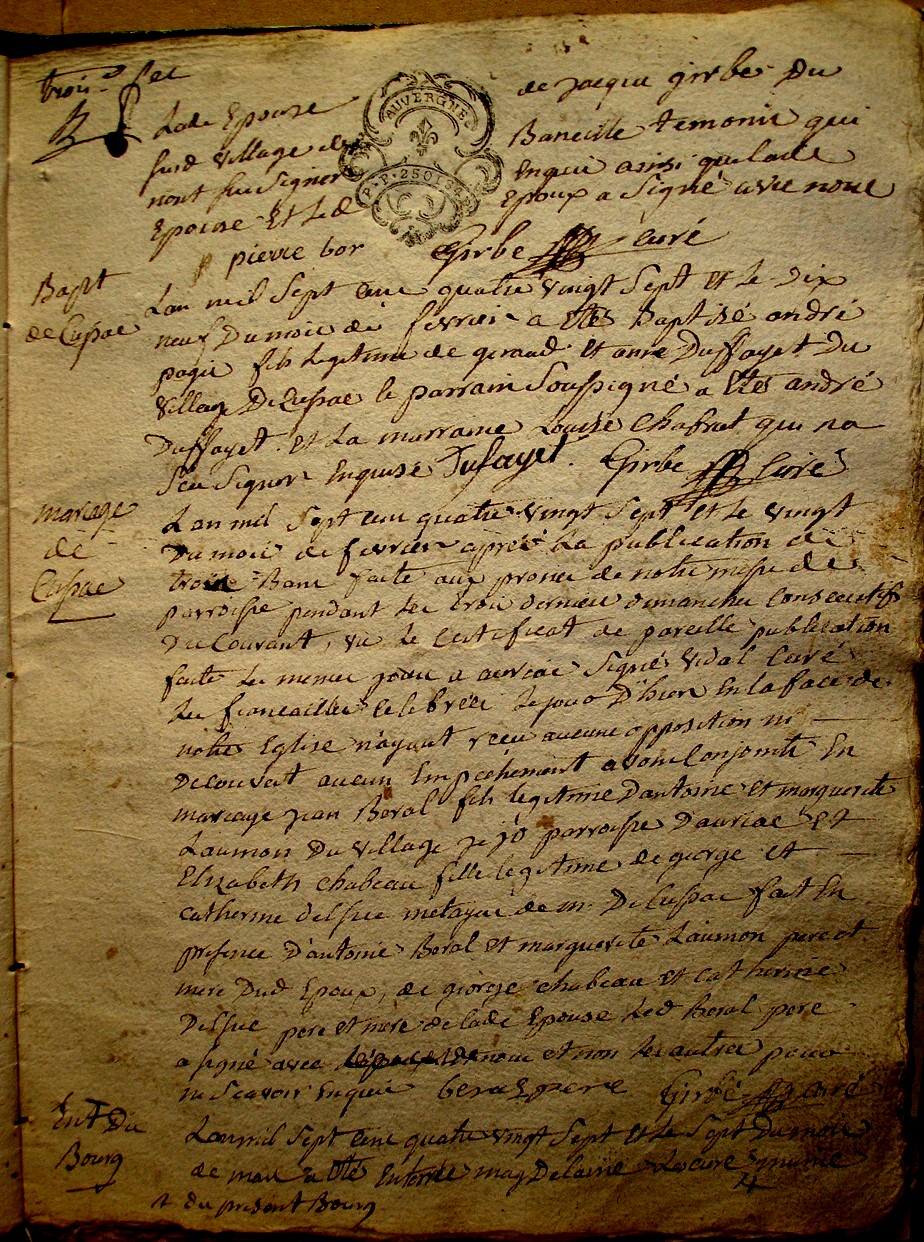 trois.e feu
Lade Epouse de jacque girbe Du
susd village de Baneille temoins qui
nont sceu signer Enquis ainsi que lade
Epouse Et led Epoux a signé avec nous
AUVERGNE
pierre bor Girbe curé
Bapt
de Cussac
Lan mil sept cent quatre vingt sept et le dix
neuf Du mois de fevrier a Eté Baptisé andré
pagis fils legitime de geraud et anne Duffayet du
village De Cussac le parrain soussigné a Eté andré
Duffayet et La marraine Louise Chafrat qui na
sceu signer Enquise Dufayet. Girbe curé
mariage
de
Cussac
Lan mil sept cent quatre vingt sept et le vingt
Du mois de fevrier après La publication de
trois Bans faite aux prones de notre messe de
parroisse pendant les trois derniers dimanches consecutifs
Du courant, vu le certificat de pareille publication
faite les memes jours a auriac signé vidal curé
les fiancailles celebrées le jour D'hier En la face de
notre Eglise n'ayant reçu aucune opposition ni
Decouvert aucun Empechement avons Conjoint En
mariage jean Beral fils legitime D'antoine et marguerite
Laumon Du village de jo parroisse D'auriac et
Elizabeth chabeau fille legitime de george et
catherine delsuc metayer de mr De Cussac fait En
presence d'antoine Beral et marguerite Laumon pere et
mere Dud Epoux, de george chabeau et catherine
Delsuc pere et mere de lade Epouse led Beral pere
a signé avec nous et non les autres pour
ne scavoir Enquis beral pere Girbe curé
Ent Du
Bourg
Lan mil sept cent quatre vingt sept et le sept du mois
de mars a Eté Enterrée magdelaine Lescure munie
+ du present Bourg